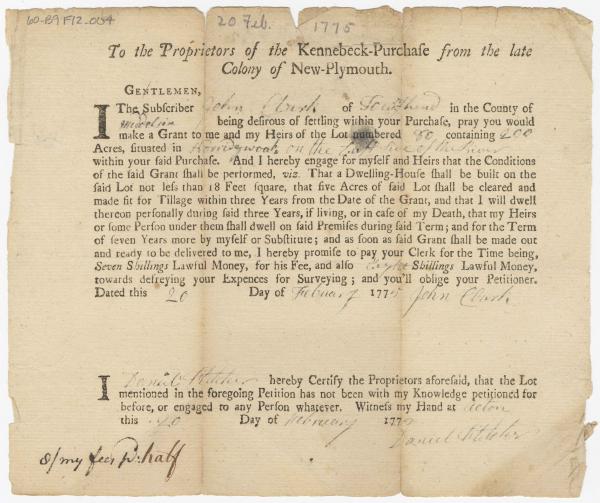 60-B9 F12-004
20 Feb. 1775
To the Proprietors of the Kennebeck-Purchaſe from the late
Colony of New-Plymouth.
GENTLEMEN,
I The Subſcriber John Clark of Townſhend in the County of
Middelsex being deſirous of ſettling within your Purchaſe, pray you would
make a Grant to me and my Heirs of the Lot numbered 80 containing 200
Acres, ſituated in on the Side of the River
within your ſaid Purchaſe. And I hereby engage for myſelf and Heirs that the Conditions
of the ſaid Grant ſhall be performed, viz. That a Dwelling-Houſe ſhall be built on the
ſaid Lot not leſs than 18 Feet ſquare, that five Acres of ſaid Lot ſhall be cleared and
made fit for Tillage within three Years from the Date of the Grant, and that I will dwell
thereon perſonally during ſaid three Years, if living, or in caſe of my Death, that my Heirs
or ſome Perſon under them ſhall dwell on ſaid Premiſes during ſaid Term; and for the Term
of ſeven Years more by myſelf or Subſtitute; and as ſoon as ſaid Grant ſhall be made out
and ready to be delivered to me, I hereby promiſe to pay your Clerk for the Time being,
Seven Shillings Lawful Money, for his Fee, and alſo Eight Shillings Lawful Money,
towards defreying your Expences for Surveying; and you'll oblige your Petitioner.
Dated this 20 Day of February 1775 John Clark
I Daniel Fletcher hereby Certify the Proprietors aforeſaid, that the Lot
mentioned in the foregoing Petition has not been with my Knowledge petitioned for
before, or engaged to any Perſon whatever. Witneſs my Hand at Acton
this 20 Day of February 1775
Daniel Fletcher
my fees half